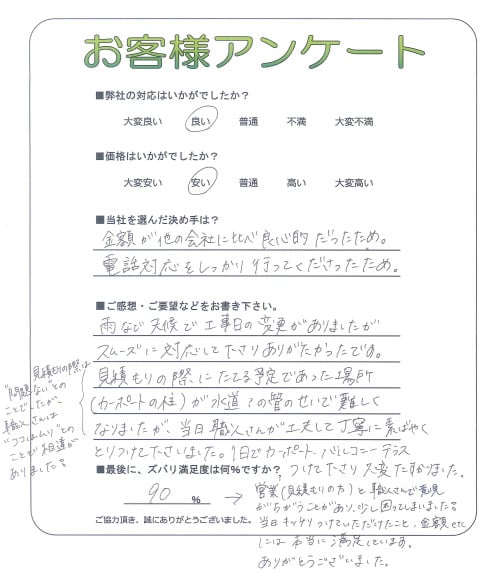 お客様アンケート
■弊社の対応はいかがでしたか?
大変良い 良い 普通 不満 大変不満
■価格はいかがでしたか?
大変安い 安い 普通 高い 大変高い
■当社を選んだ決め手は?
金額が他の会社に比べ良心的だったため。
電話対応をしっかり行ってくださったため。
■ご感想・ご要望などをお書き下さい。
雨など天候で工事日の変更がありましたが
スムーズに対応して下さりありがたかったです。
見積もりの際、にたてる予定であった場所
(カーポートの柱)が水道の管のせいで難しく
なりましたが、当日職人さんが工夫して丁寧に素ばやく
とりつけて下さいました。1日でカーポート、バルコニーテラス
つけて下さり大変たすかりました。
見積もりの際は
"問題ない"との
ことでしたが、
職人さんは
"ココはムリ"との
ことで相違が
ありました。
■最後に、ズバリ満足度は何%ですか?
90 %
営業(見積もりの方)と職人さんで意見
がちがうことがあり、少し困ってしまいました。
当日キッチリつけていただけたこと、金額etc
には本当に満足しています。
ありがとうございました。
ご協力頂き、誠にありがとうございました。